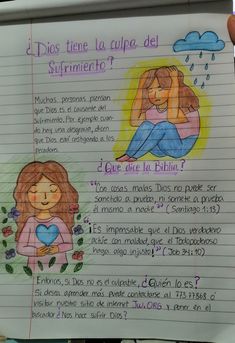 ¿Dios tiene la culpa del
Sufrimiento?
Muchas personas piensan
que Dios es el causante del
Sufrimiento. Por ejemplo cuan-
do hay una desgracia, dicen
que Dios está castigando a los
pecadores.
¿Que dice la Biblia?
"Con cosas malas Dios no puede ser
sometido a prueba, ni somete a prueba
él mismo a nadie" (Santiago 1:13)
"Es impensable que el Dios verdadero
actúe con maldad, que el Todopoderoso
haga algo injusto" (Job 34:10)
Entonces, si Dios no es el culpable, ¿Quién lo es?
Si desea aprender más puede contactarse al
visitar nuestro sitio de internet JW.ORG y poner en el
buscador ¿Nos hace sufrir Dios?